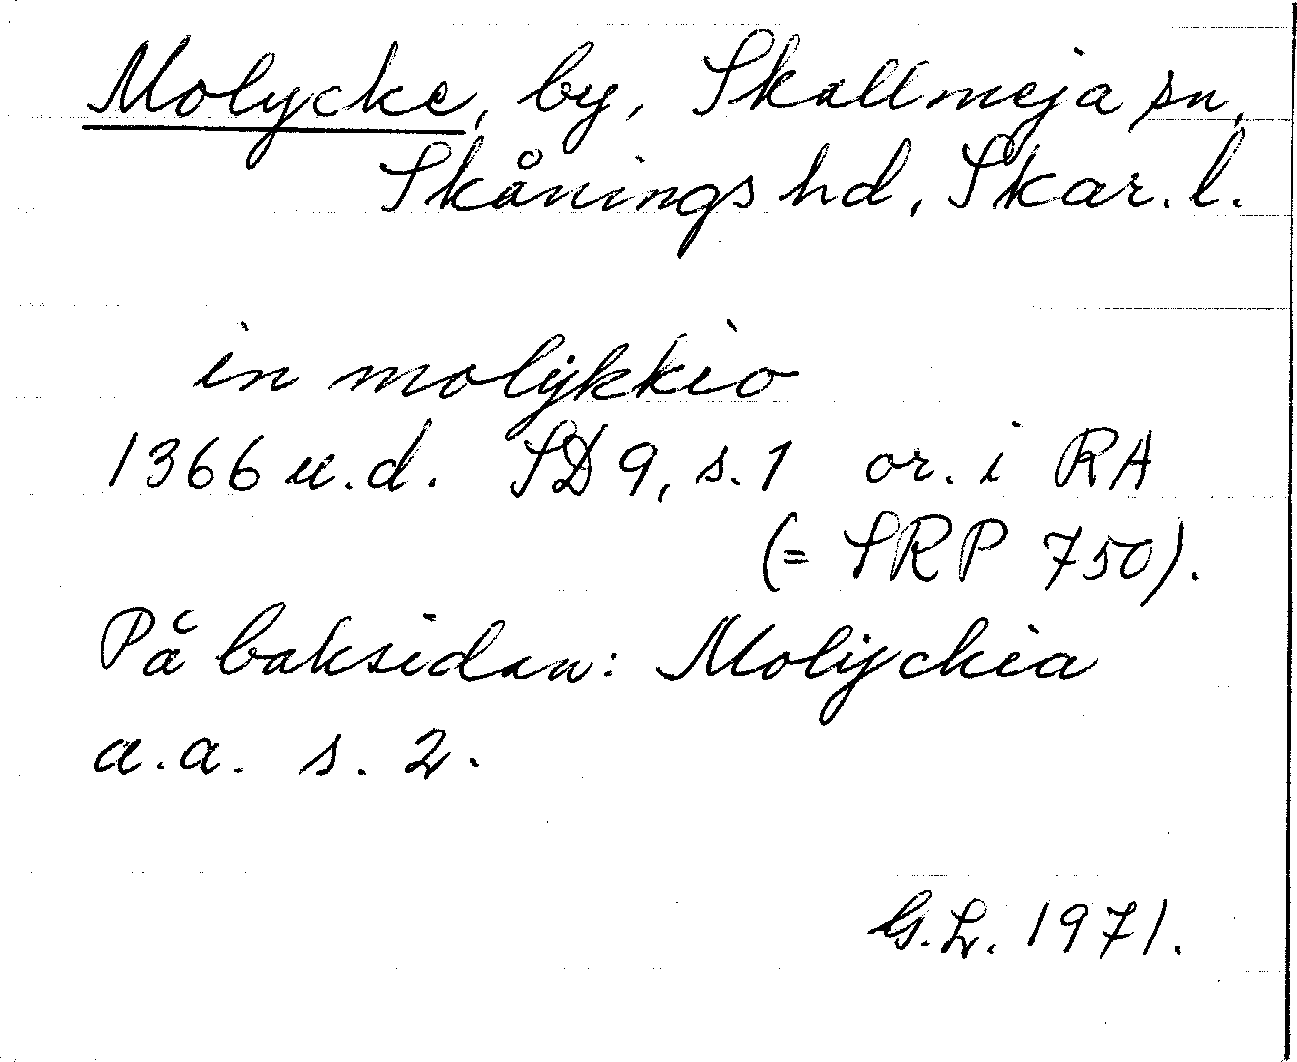 Molycke, by, Skallmeja sn,
Skånings hd, Skar. l.
in molÿkkio
1366 u.d. SD 9, s. 1 or. i RA
(= SRP 750).
På baksidan: Molÿckia
a.a. s. 2.
G.L. 1971.